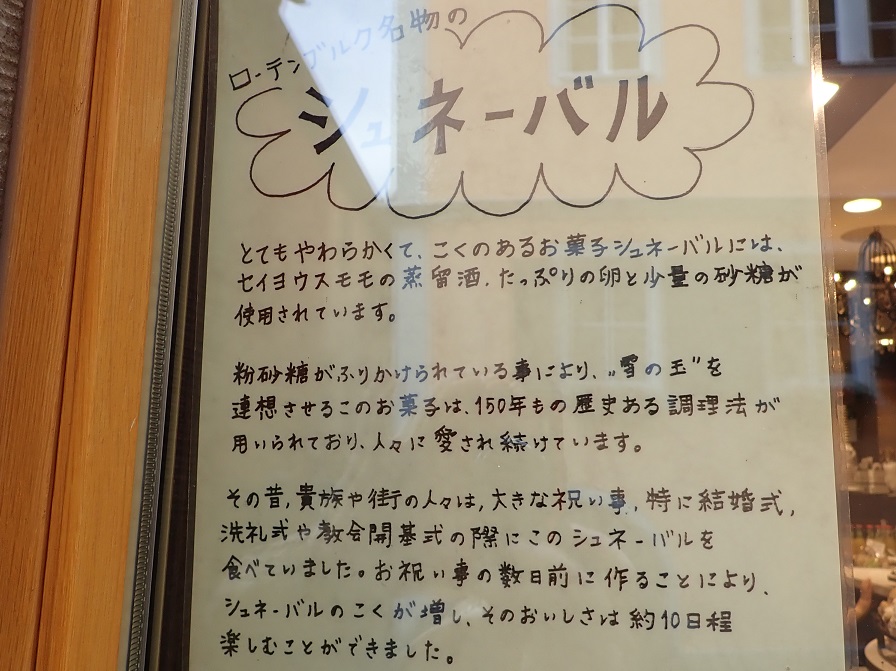 ローテンブルク名物の
シュネーバル
とてもやわらかくて、こくのあるお菓子シュネーバルには、
セイヨウスモモの蒸留酒、たっぷりの卵と少量の砂糖が
使用されています。
粉砂糖がふりかけられている事により、„雪の玉”を
連想させるこのお菓子は、150年もの歴史ある調理法が
用いられており、人々に愛され続けています。
その昔、貴族や街の人々は、大きな祝い事、特に結婚式、
洗礼式や教会開基式の際にこのシュネーバルを
食べていました。お祝い事の数日前に作ることにより、
シュネーバルのこくが増し、そのおいしさは約10日程
楽しむことができました。